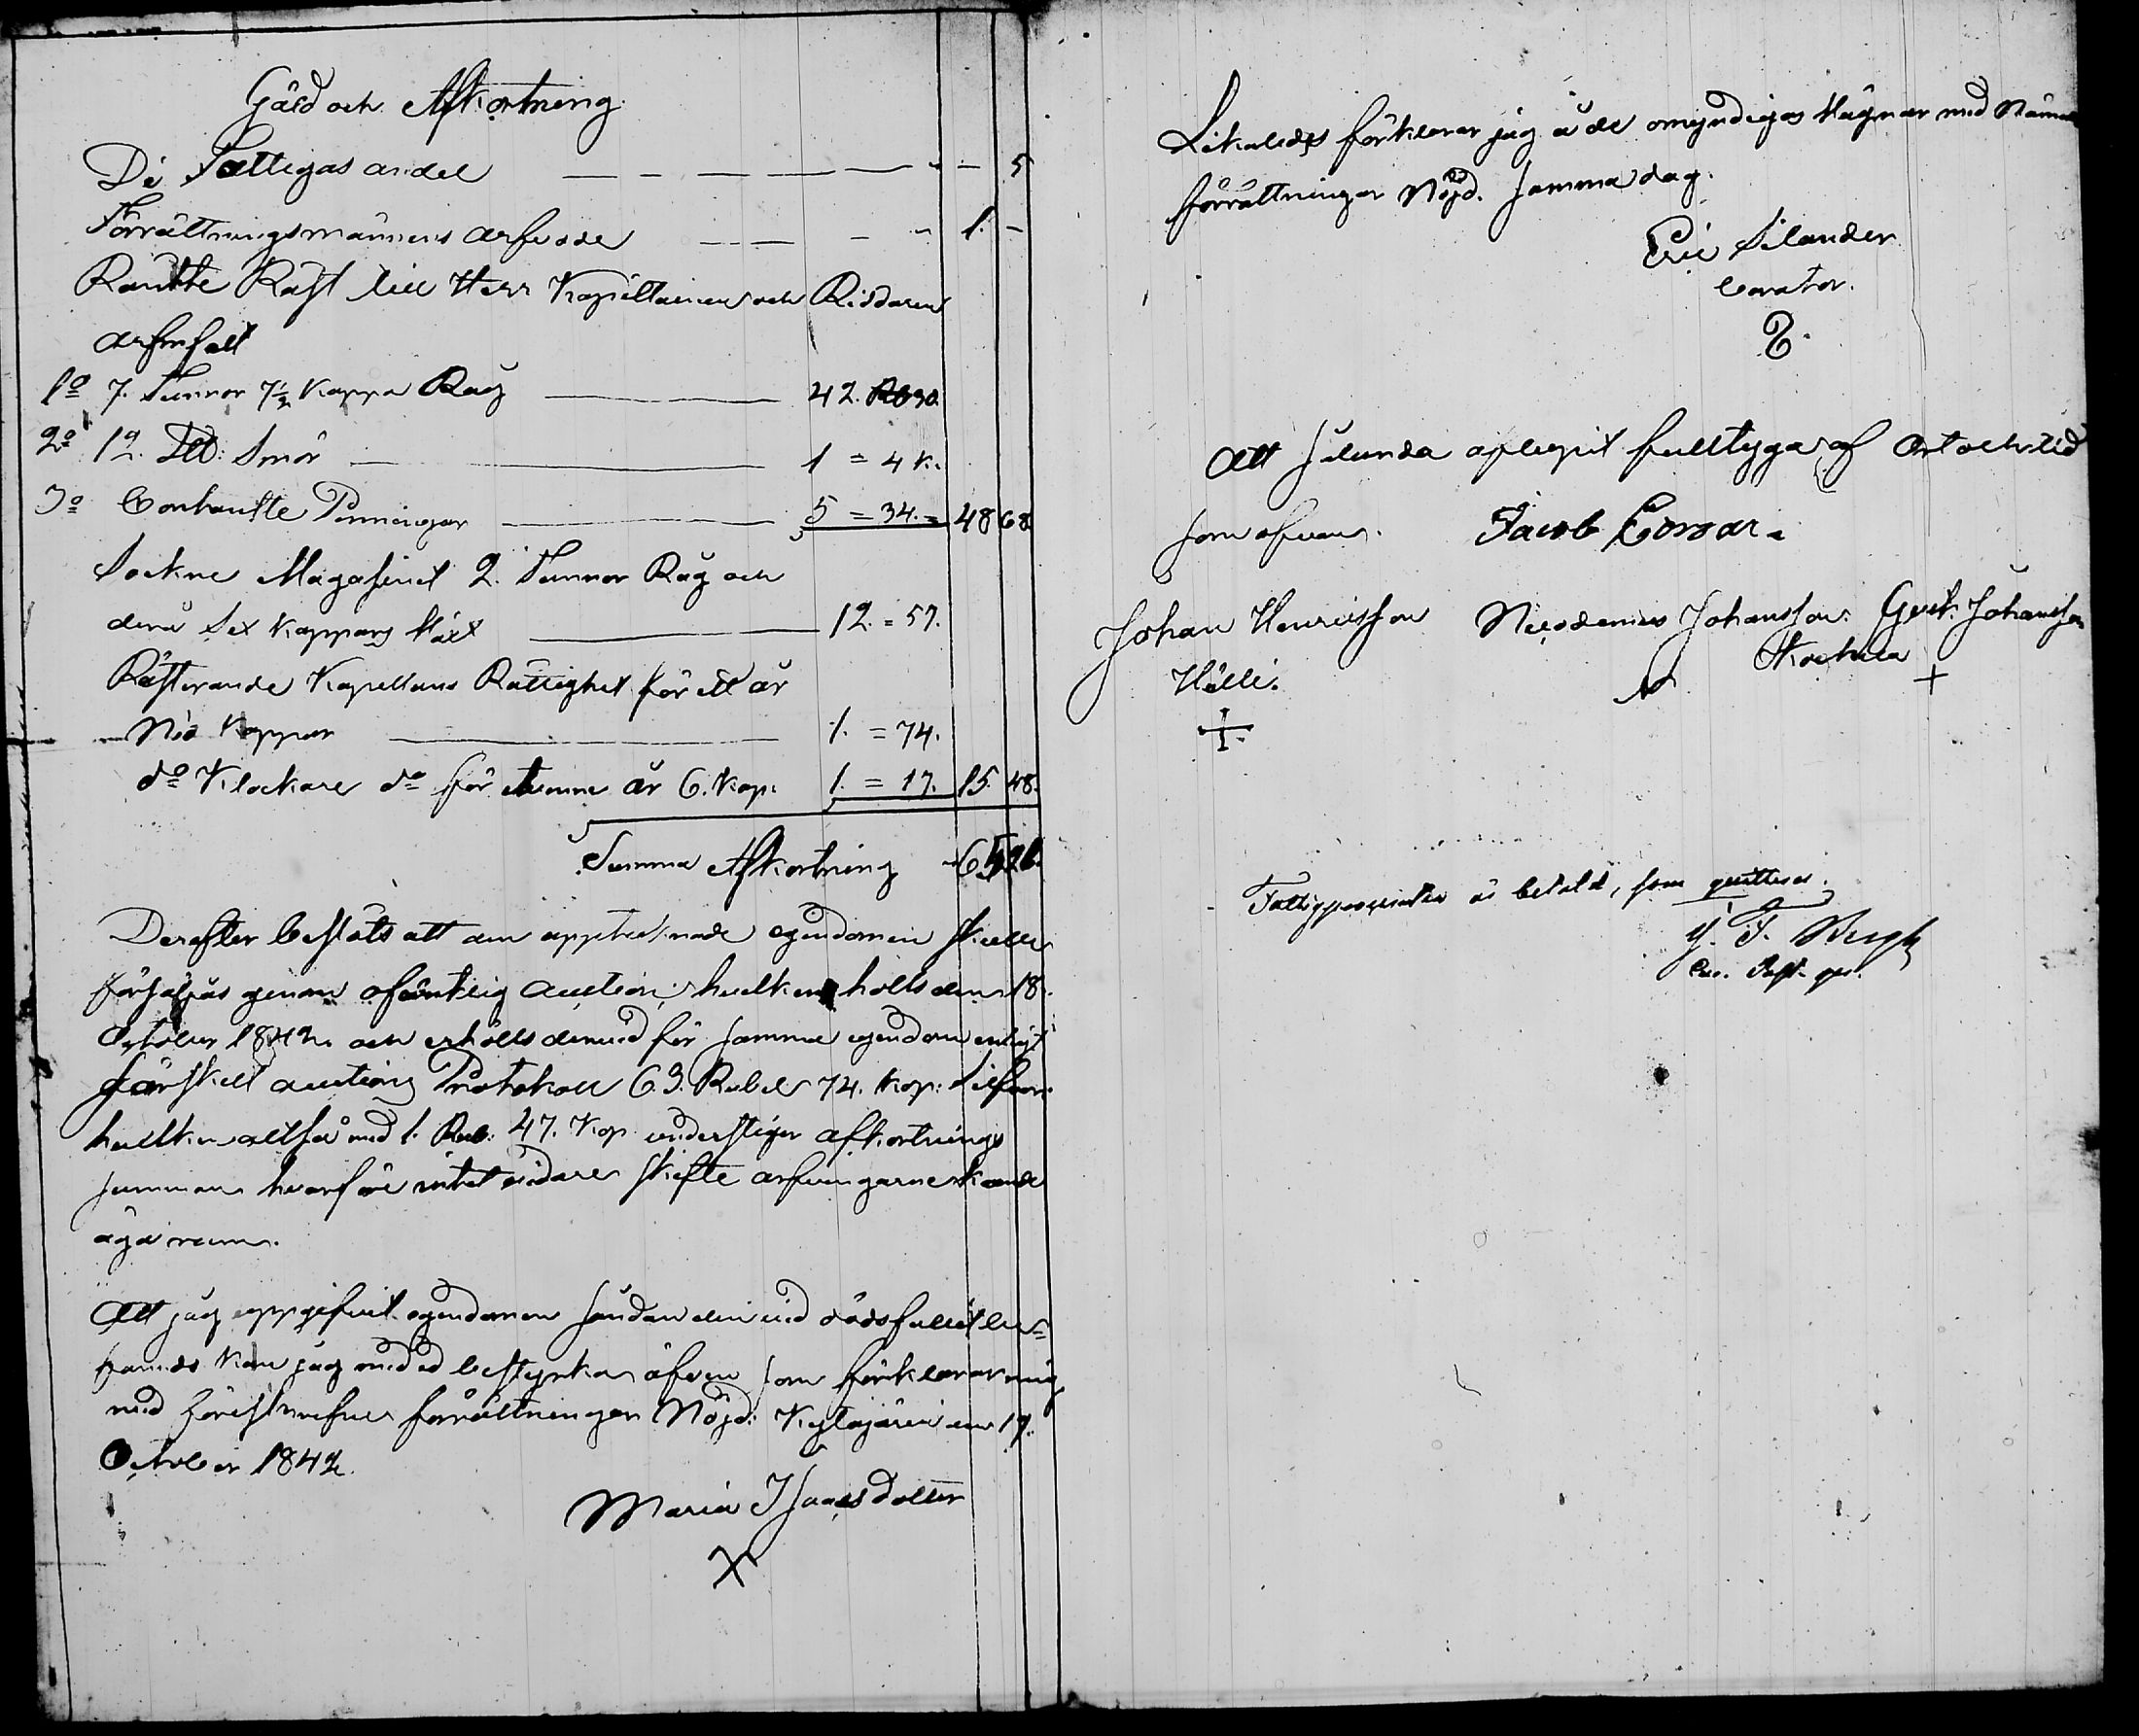 Gäld och Afkortning.
De Fattigas andel — — — — — — — 5
Förrättningsmännens arfvode — — — — 1. —
Räntte Räst till Herr Kapitainen och Riddaren
1o 7. Tunnor 7½ Kappa Råg — 42. 30.
2o 12. ℔: Smör — 1 = 4 k.
3o Contante Penningar — 5 = 34. = 48 68.
Sockne Magasinet 2. Tunnor Råg och
derå Sex Kappars Växt — 12. = 57.
Resterande Kapellans Rättighet för ett år
Nio Kappar — 1. = 74.
do Klockare do för samma år 6. Kap: 1. = 17. 15. 48.
Summa Afkortning 65 21.
Derefter beslöts att den uppteknade egendomen skulle
försäljas genom offentlig auction; hvilken hölls den 18.
October 1842. och erhölls dervid för samma egendom enligt
särskilt auctions Protokoll 63. Rubel 74. Kop: Silfver.
hvilken altså med 1. Rub: 47. Kop. understiger afkortnings
summan hvarföre intet vidare skifte arfvingarne kunde
äga rum.
Att jag uppgifvit egendomen sådan den vid dödsfallet be=
fanns kan jag med ed bestyrka, äfven som förklarar mig
med föreskrefne förrättningar Nöjd. den 17.
October 1842.
Maria Isaacs dotter
X
Likaledes förklarar jag å de omyndigas vägnar med
förrättningar Nöjd. Samma dag.
Eric Silander
Curator.
Att sålunda aflupit fulltyga af Ort och tid
som ofvan. Jacob
Johan Henricsson Nicodemus Johansson. Gust. Johansson
Hälli. +
+
Fattigprocenten är betald, som quitteras.